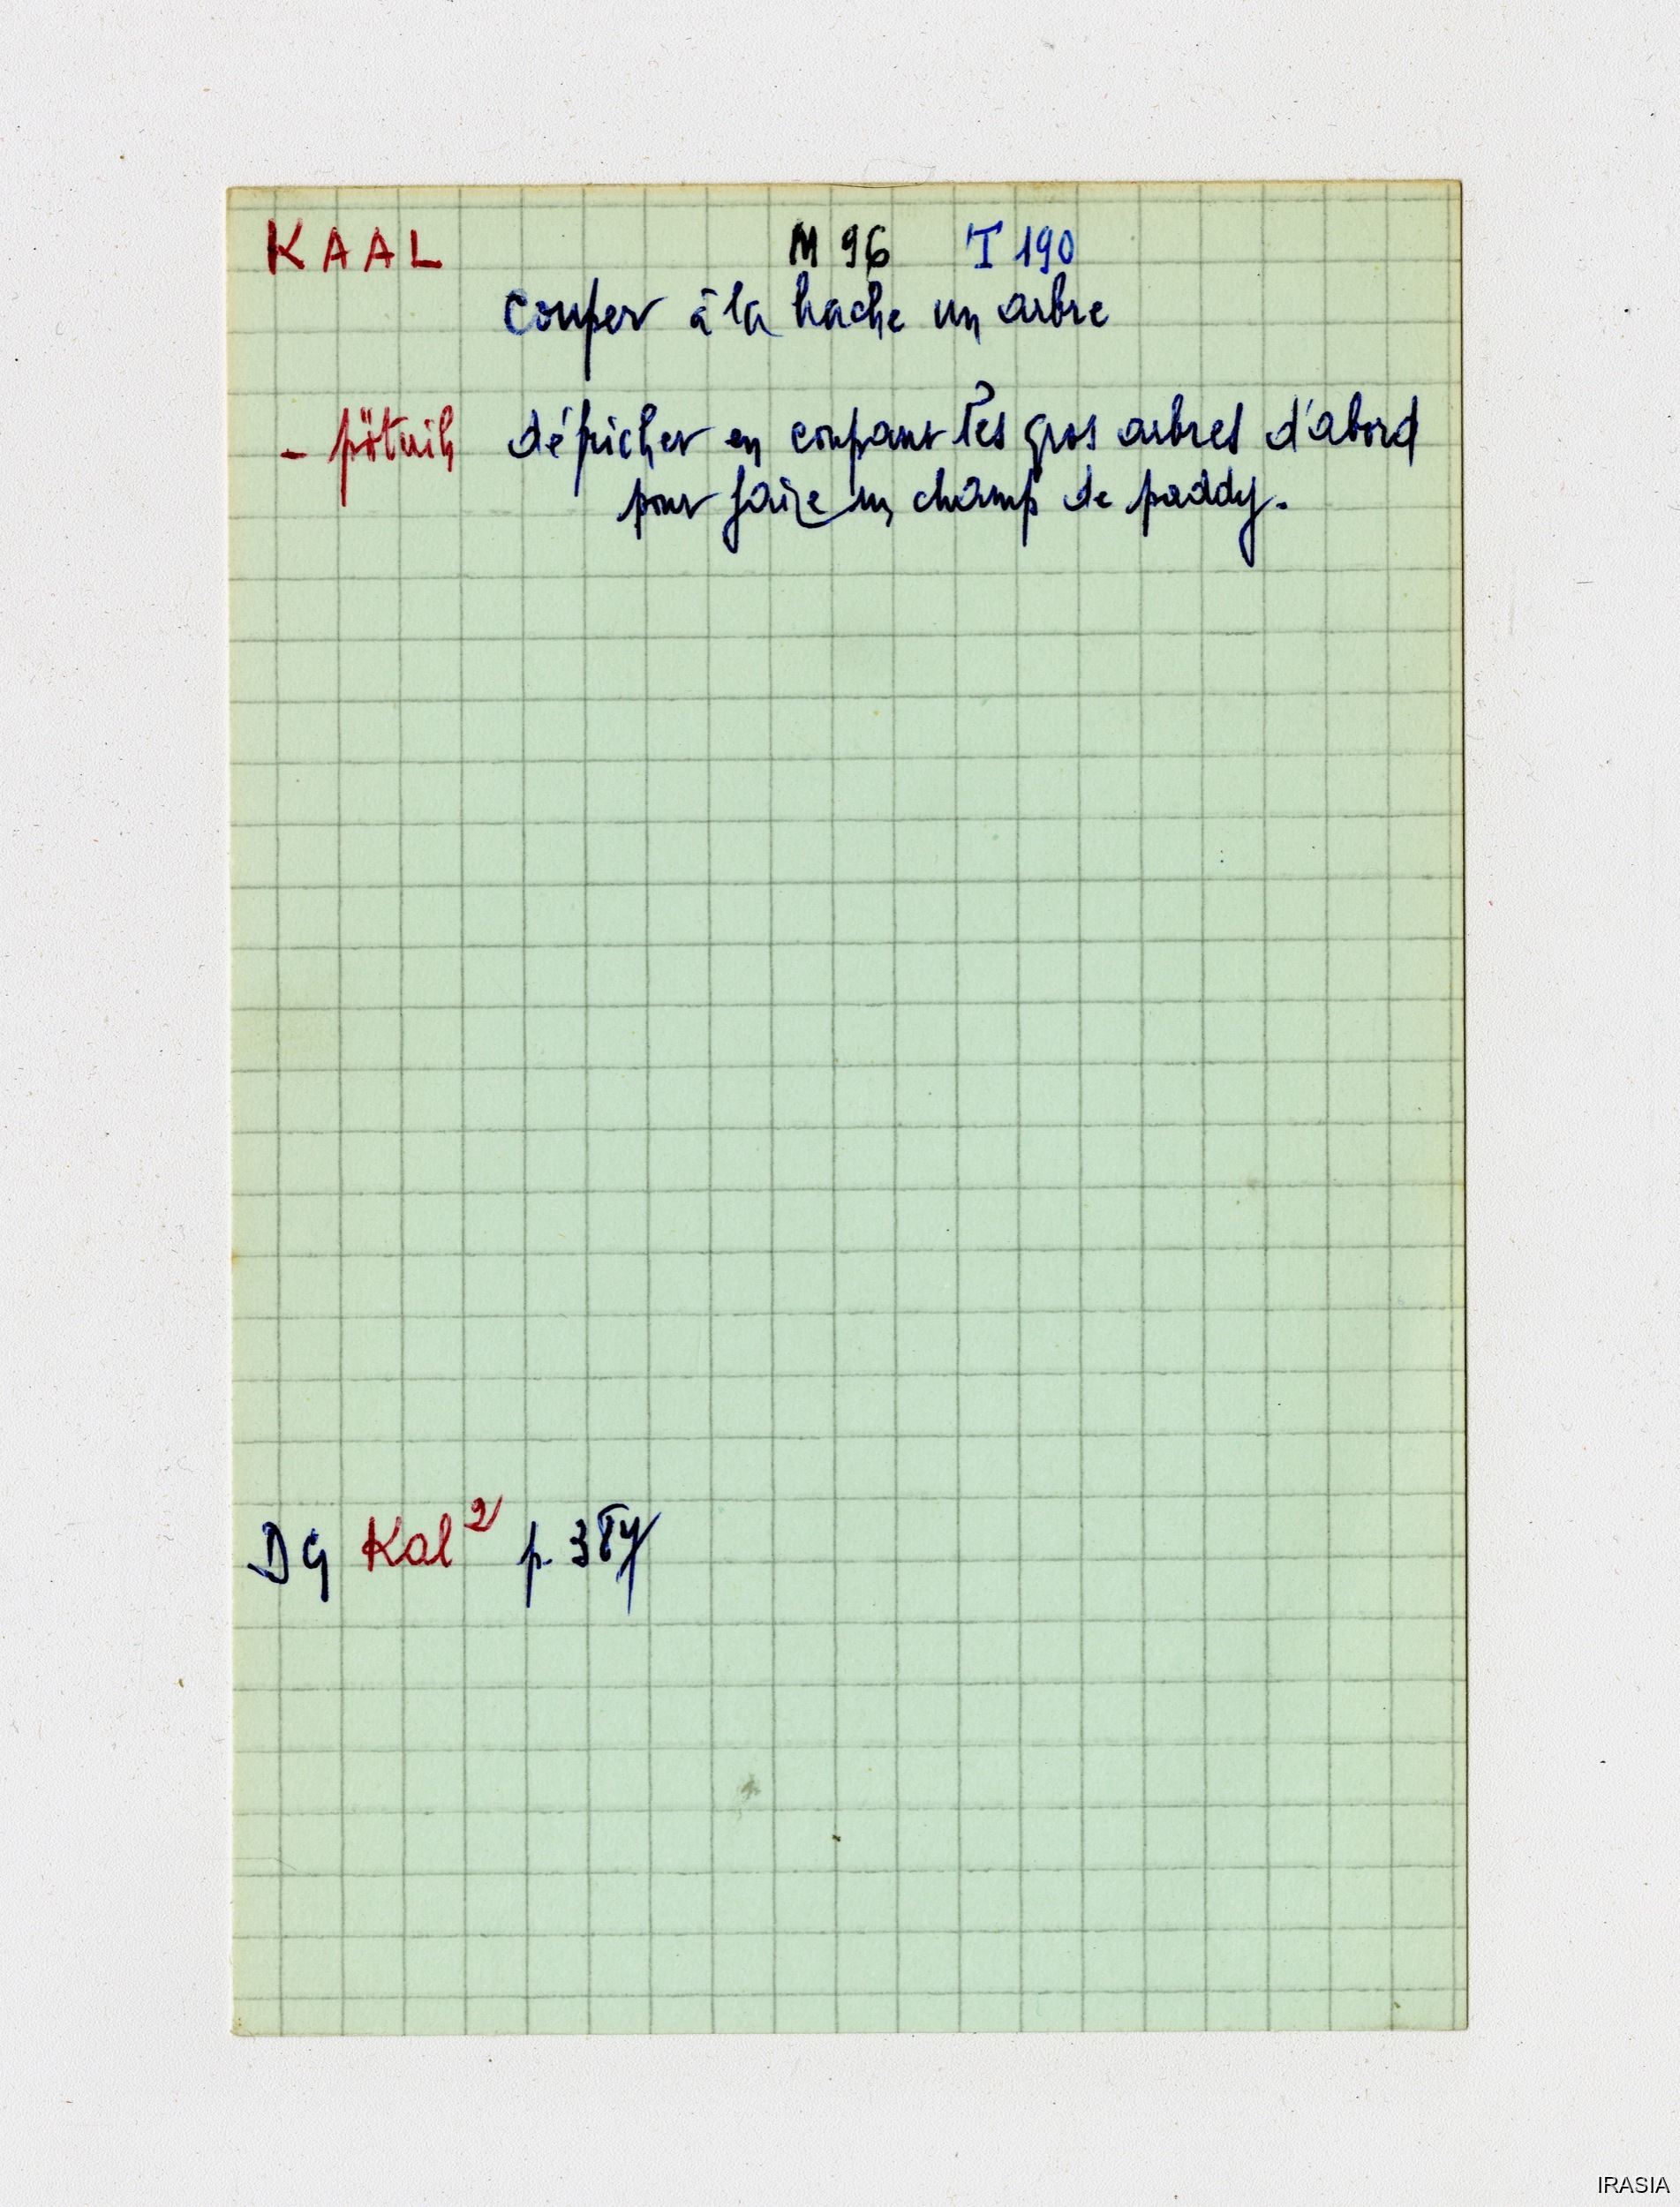 KAAL M 96 T 190
couper à la hache un arbre
- pötuih défricher en coupant les gros arbres d'abord
pour faire un champ de paddy.
DG Kal² p.
IRASIA